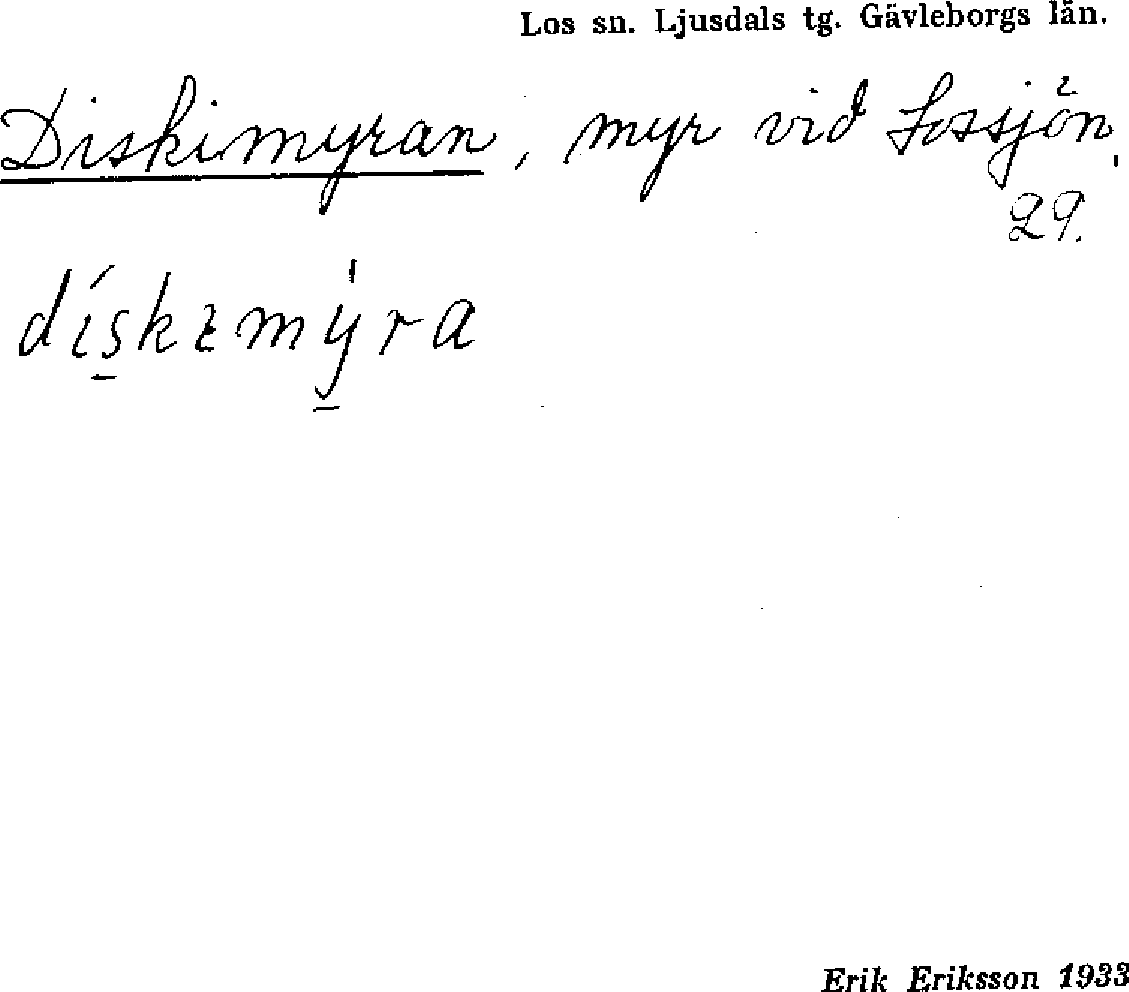 Los sn. Ljusdals tg. Gävleborgs län.
Diskimyran, myr vid Lossjön,
29.
dískɩmýra
Erik Eriksson 1933